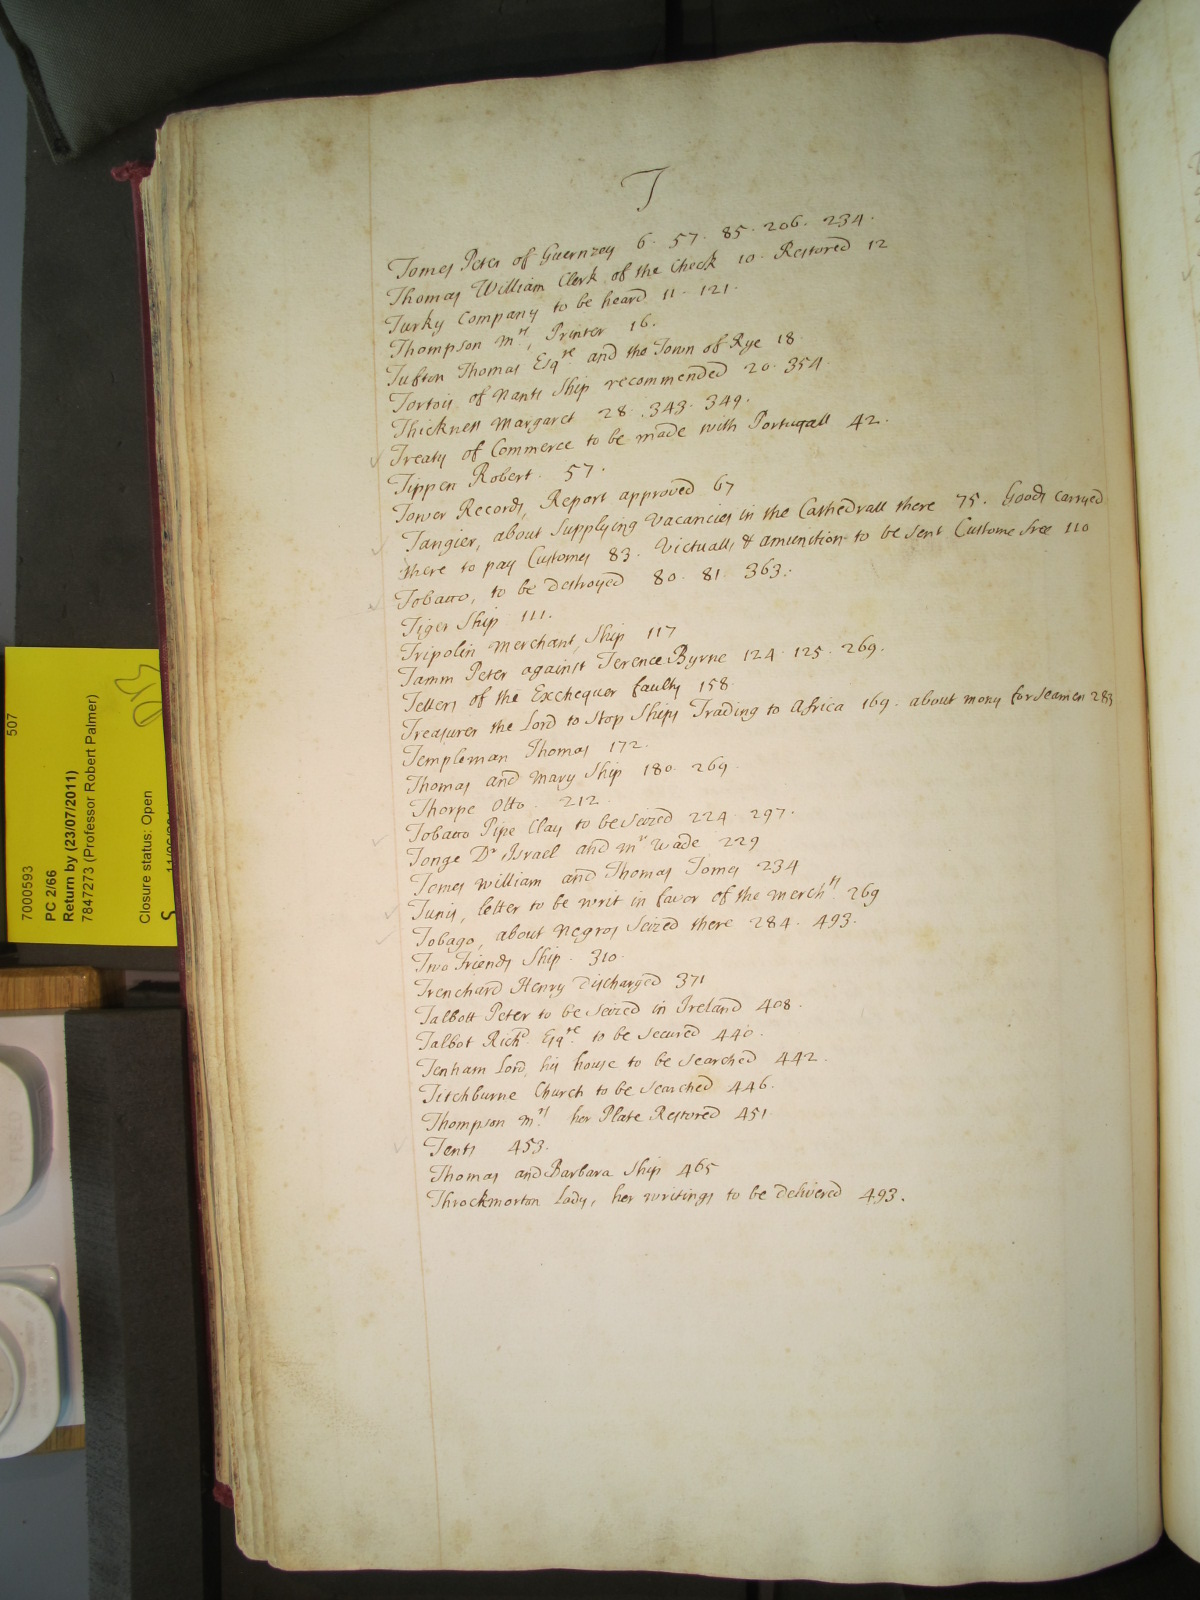 T
Tomes Peter of Guernzey 6. 57. 85. 206. 234.
Thomas William Clerk of the Check 10. Restored 12
Turky Company to be heard 11. 121.
Thompson Mrs, Printer 16.
Tufton Thomas Esqre and the Town of Rye 18
Tortois of Nants Ship recommended 20. 354
Thickness Margaret 28. 343. 349.
Treaty of Commerce to be made with Portugall 42.
Tippen Robert. 57.
Tower Records, Report approved 67
Tangier, about Supplying Vacancies in the Cathedrall there 75. Goods carryed
there to pay Customes 83. Victualls & amunition to be sent Custome free 110
Tobacco, to be destroyed 80. 81. 363.
Tiger Ship 111.
Tripolin Merchant, Ship 117
Tamm Peter against Terence Byrne 124. 125. 269.
Tellers of the Exchequer faulty 158
Treasurer the Lord to stop Ships Trading to Africa 169. about mony for Seamen 283
Templeman Thomas 172.
Thomas and Mary Ship 180. 269.
Thorpe Otto. 212
Tobacco Pipe Clay to be Seized 224. 297.
Tonge Dr Israel and Mr Wade 229
Tomes William and Thomas Tomes 234
Tunis, letter to be writ in favor of the Merchts 269
Tobago, about Negros Seized there 284. 493.
Two Friends Ship. 310.
Trenchard Henry Discharged 371
Talbott Peter to be seized in Ireland 408.
Talbot Richd Esqre to be secured 440.
Tenham Lord, his house to be searched 442.
Titchburne Church to be searched 446.
Thompson Mrs her Plate Restored 451
Tents 453.
Thomas and Barbara Ship 465
Throckmorton Lady, her writings to be delivered 493.
507
7000593
PC 2/66
Return by (23/07/2011)
7847273 (Professor Robert Palmer)
Closure status: Open